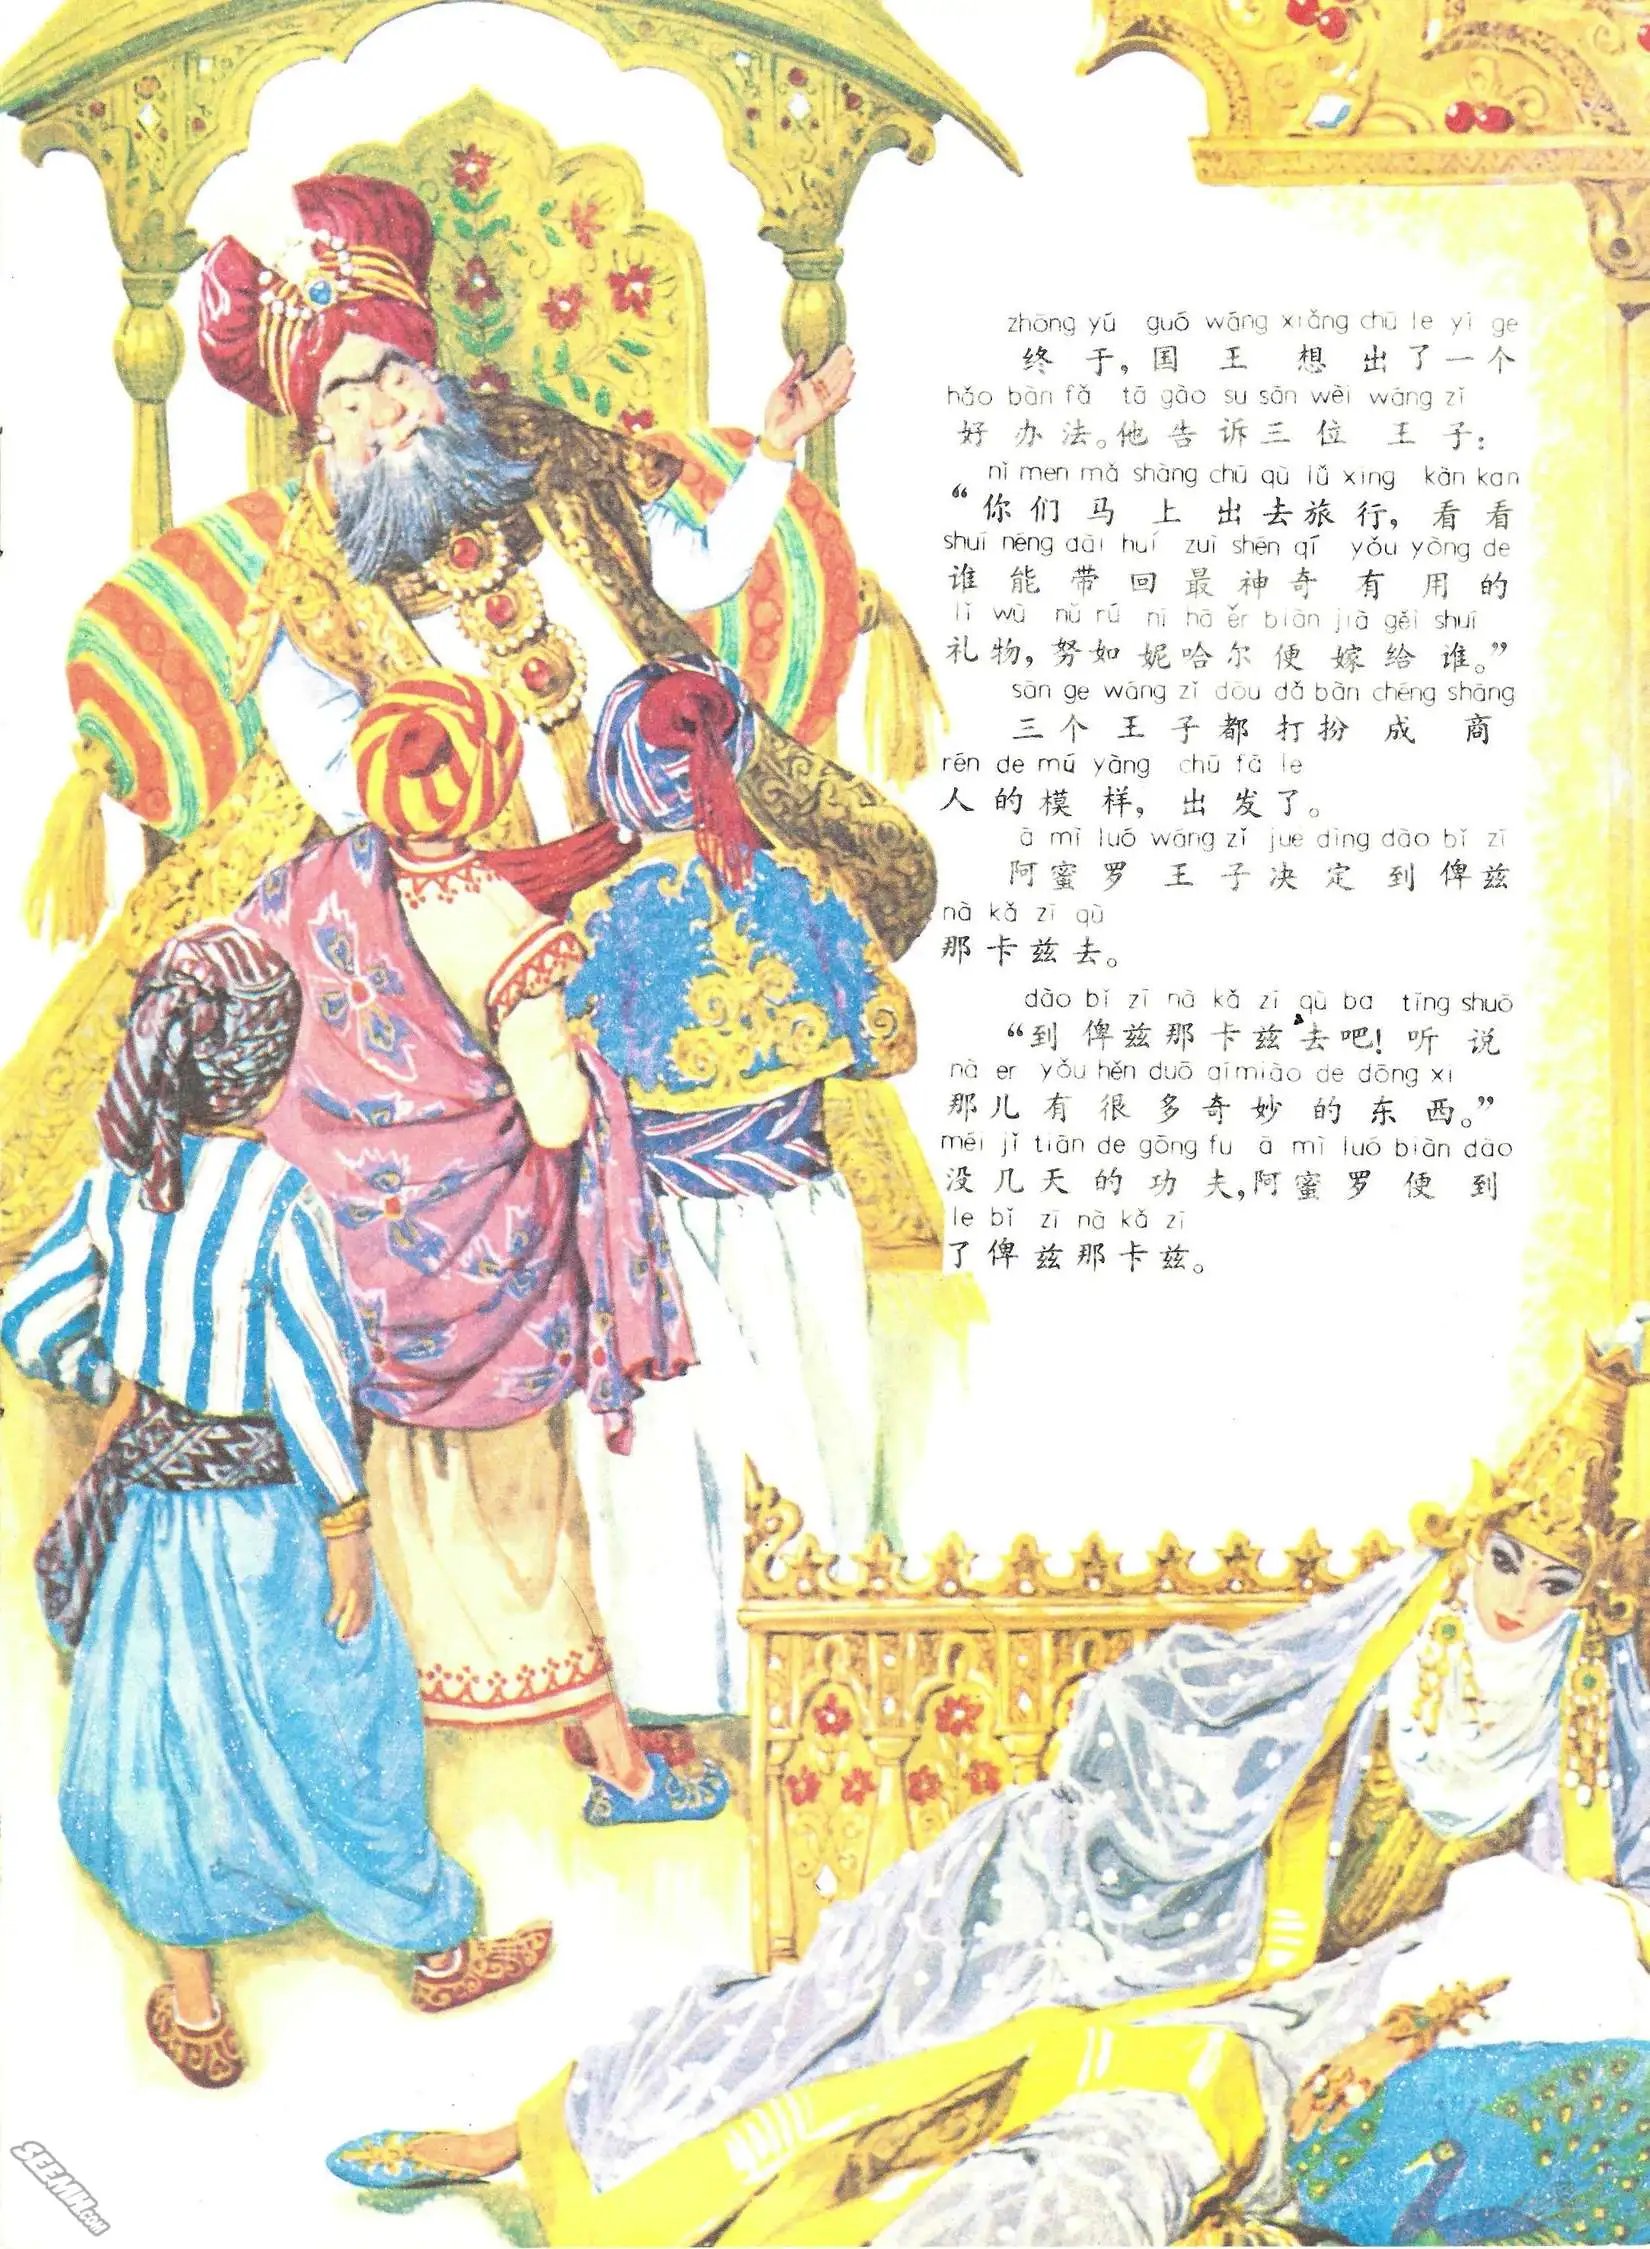 zhōng yú guó wáng xiǎng chū le yí ge
终于，国王想出了一个
hǎo bàn fǎ tā gào su sān wèi wáng zǐ
好办法。他告诉三位王子：
nǐ men mǎ shàng chū qù lǚ xíng kàn kan
“你们马上出去旅行，看看
shuí néng dài huí zuì shén qí yǒu yòng de
谁能带回最神奇有用的
lǐ wù nǔ rú nī hā ěr biàn jià gěi shuí
礼物，努如妮哈尔便嫁给谁。”
sān ge wáng zǐ dōu dǎ bàn chéng shāng
三个王子都打扮成商
rén de mú yàng chū fā le
人的模样，出发了。
ā mì luó wáng zǐ jué dìng dào bǐ zī
阿蜜罗王子决定到俾兹
nà kǎ zī qù
那卡兹去。
dào bǐ zī nà kǎ zī qù ba tīng shuō
“到俾兹那卡兹去吧！听说
nà er yǒu hěn duō qí miào de dōng xi
那儿有很多奇妙的东西。”
méi jǐ tiān de gōng fu ā mì luó biàn dào
没几天的功夫，阿蜜罗便到
le bǐ zī nà kǎ zī
了俾兹那卡兹。
SEEMH.COM